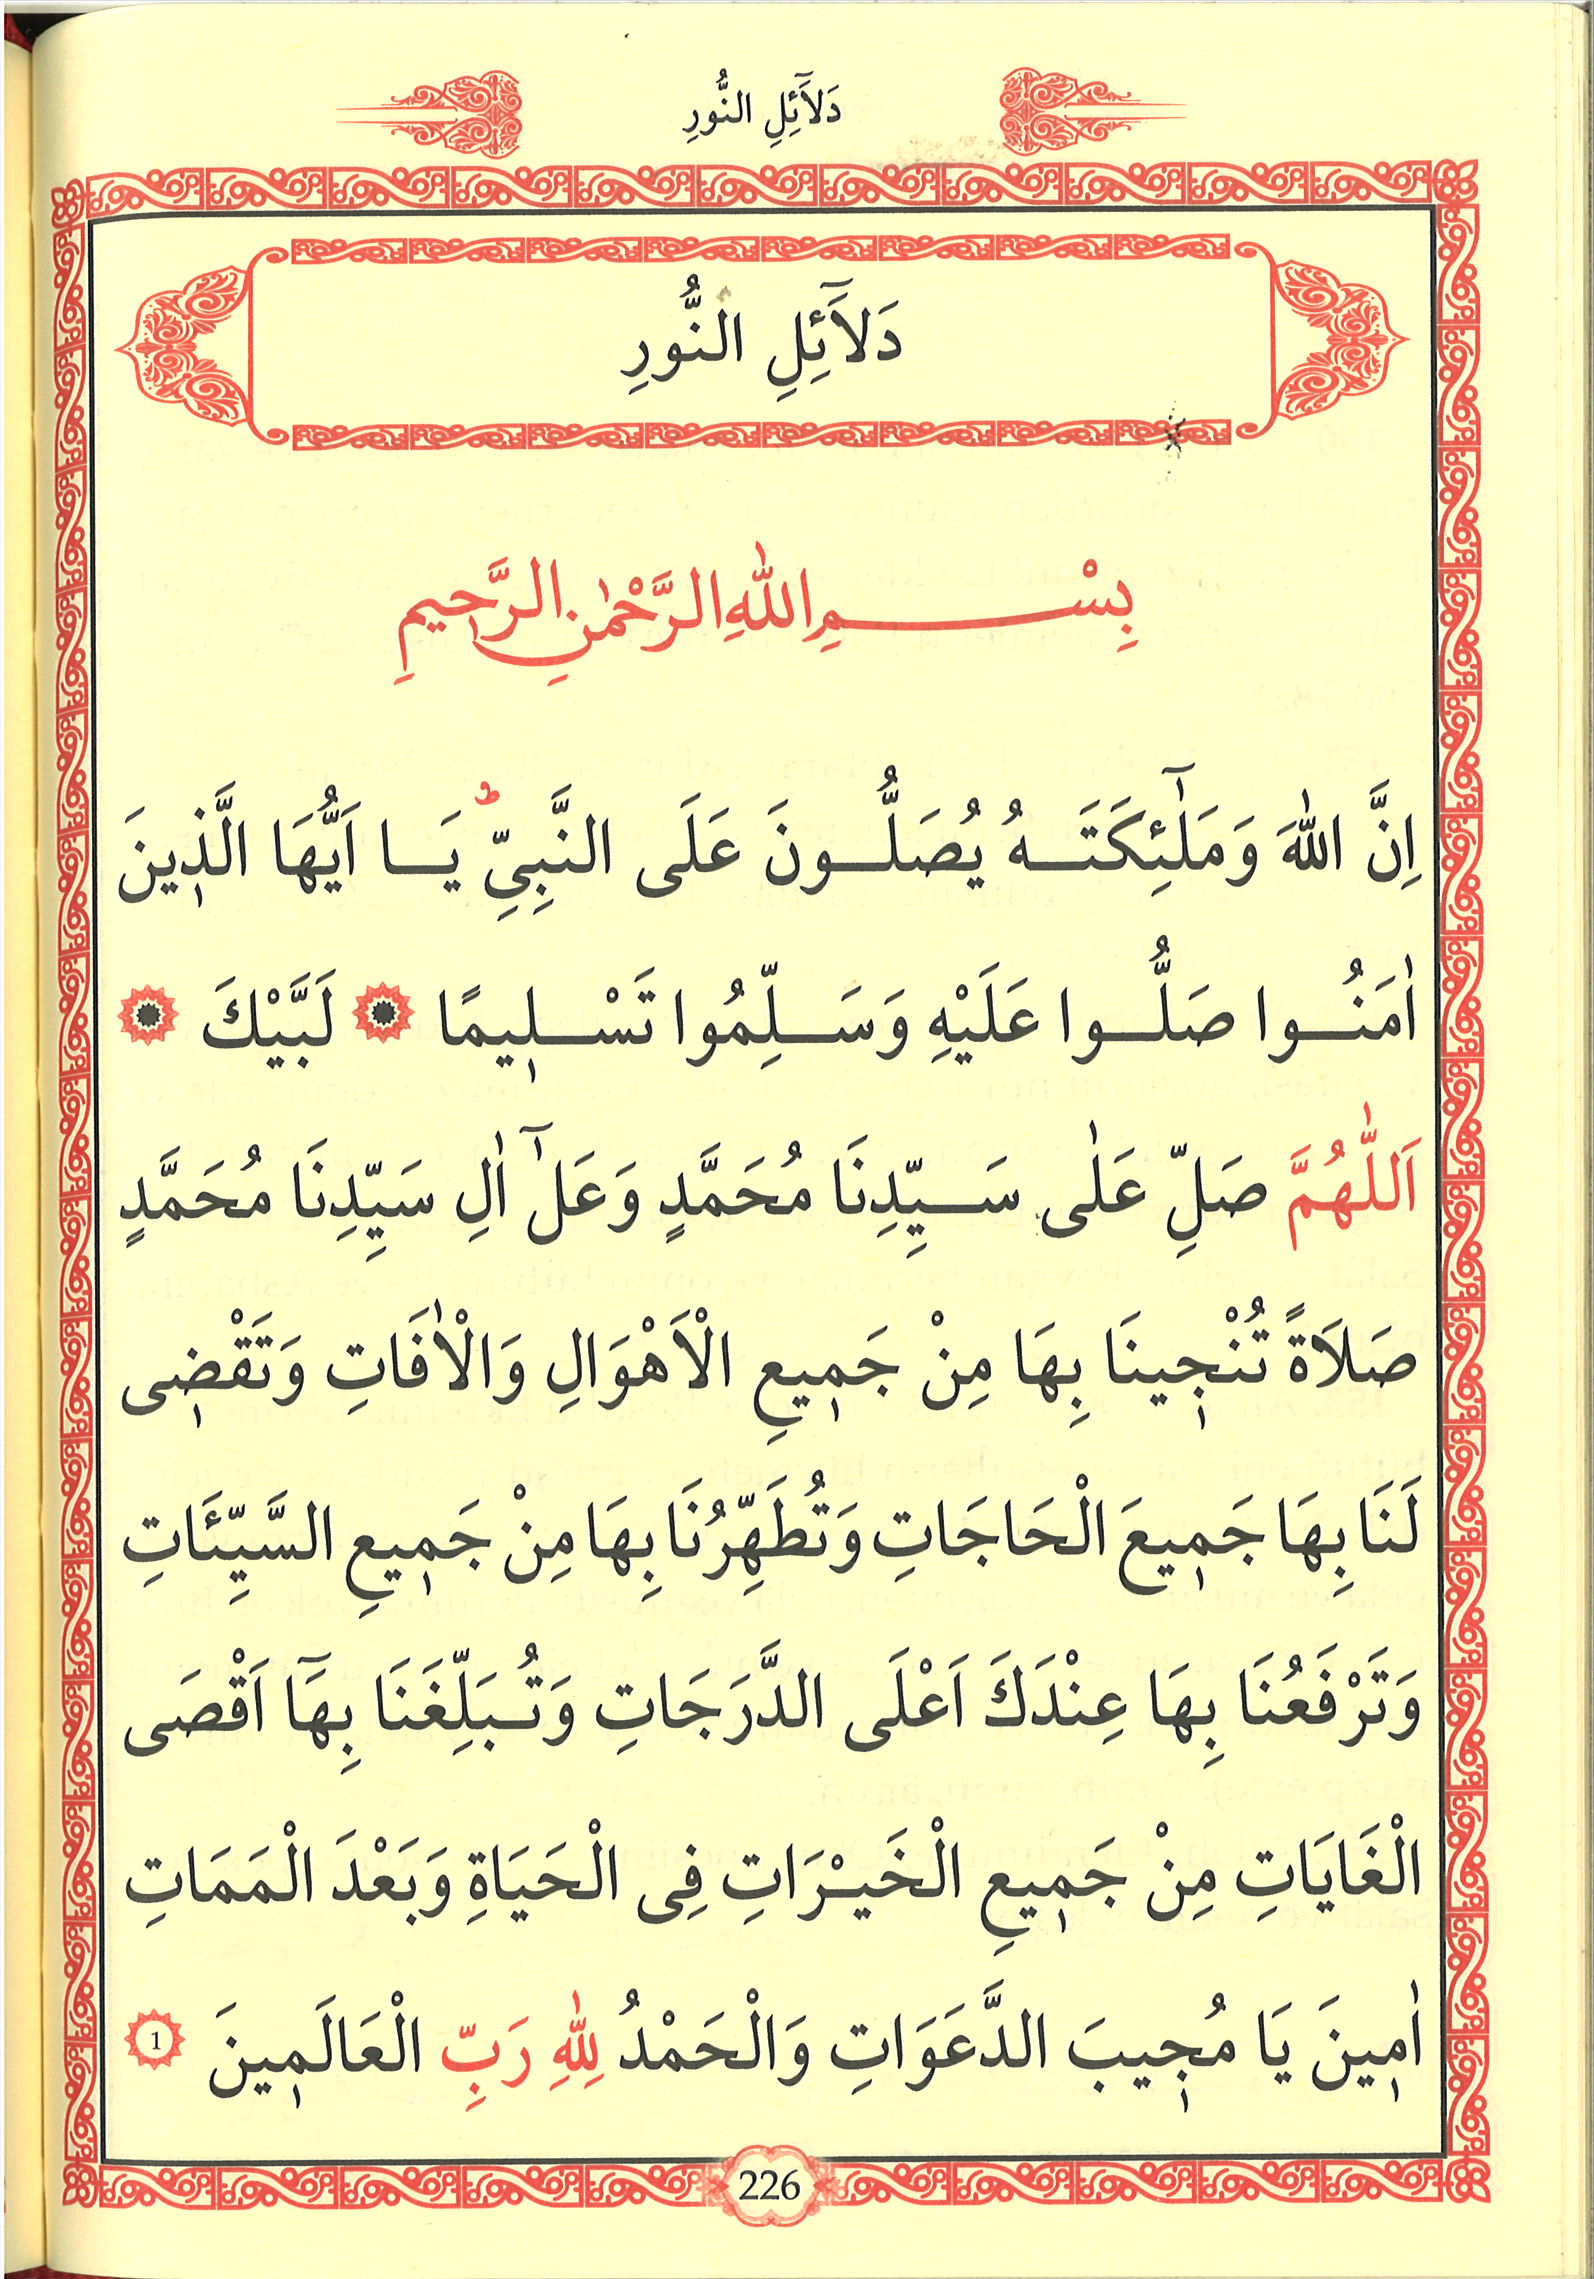 دَلَٓائِلِ النُّورِ
دَلَٓائِلِ النُّورِ
بِسْمِ اللّٰهِ الرَّحْمٰنِ الرَّح۪يمِ
اِنَّ اللّٰهَ وَمَلٰٓئِكَتَهُ يُصَلُّونَ عَلَى النَّبِيِّۜ يَا اَيُّهَا الَّذ۪ينَ
اٰمَنُوا صَلُّوا عَلَيْهِ وَسَلِّمُوا تَسْل۪يمًا ۞ لَبَّيْكَ ۞
اَللّٰهُمَّ صَلِّ عَلٰى سَيِّدِنَا مُحَمَّدٍ وَعَلٰٓ اٰلِ سَيِّدِنَا مُحَمَّدٍ
صَلَاةً تُنْج۪ينَا بِهَا مِنْ جَم۪يعِ الْاَهْوَالِ وَالْاٰفَاتِ وَتَقْض۪ى
لَنَا بِهَا جَم۪يعَ الْحَاجَاتِ وَتُطَهِّرُنَا بِهَا مِنْ جَم۪يعِ السَّيِّئَاتِ
وَتَرْفَعُنَا بِهَا عِنْدَكَ اَعْلَى الدَّرَجَاتِ وَتُبَلِّغَنَا بِهَٓا اَقْصَى
الْغَايَاتِ مِنْ جَم۪يعِ الْخَيْرَاتِ فِى الْحَيَاةِ وَبَعْدَ الْمَمَاتِ
اٰم۪ينَ يَا مُج۪يبَ الدَّعَوَاتِ وَالْحَمْدُ لِلّٰهِ رَبِّ الْعَالَم۪ينَ 1
226